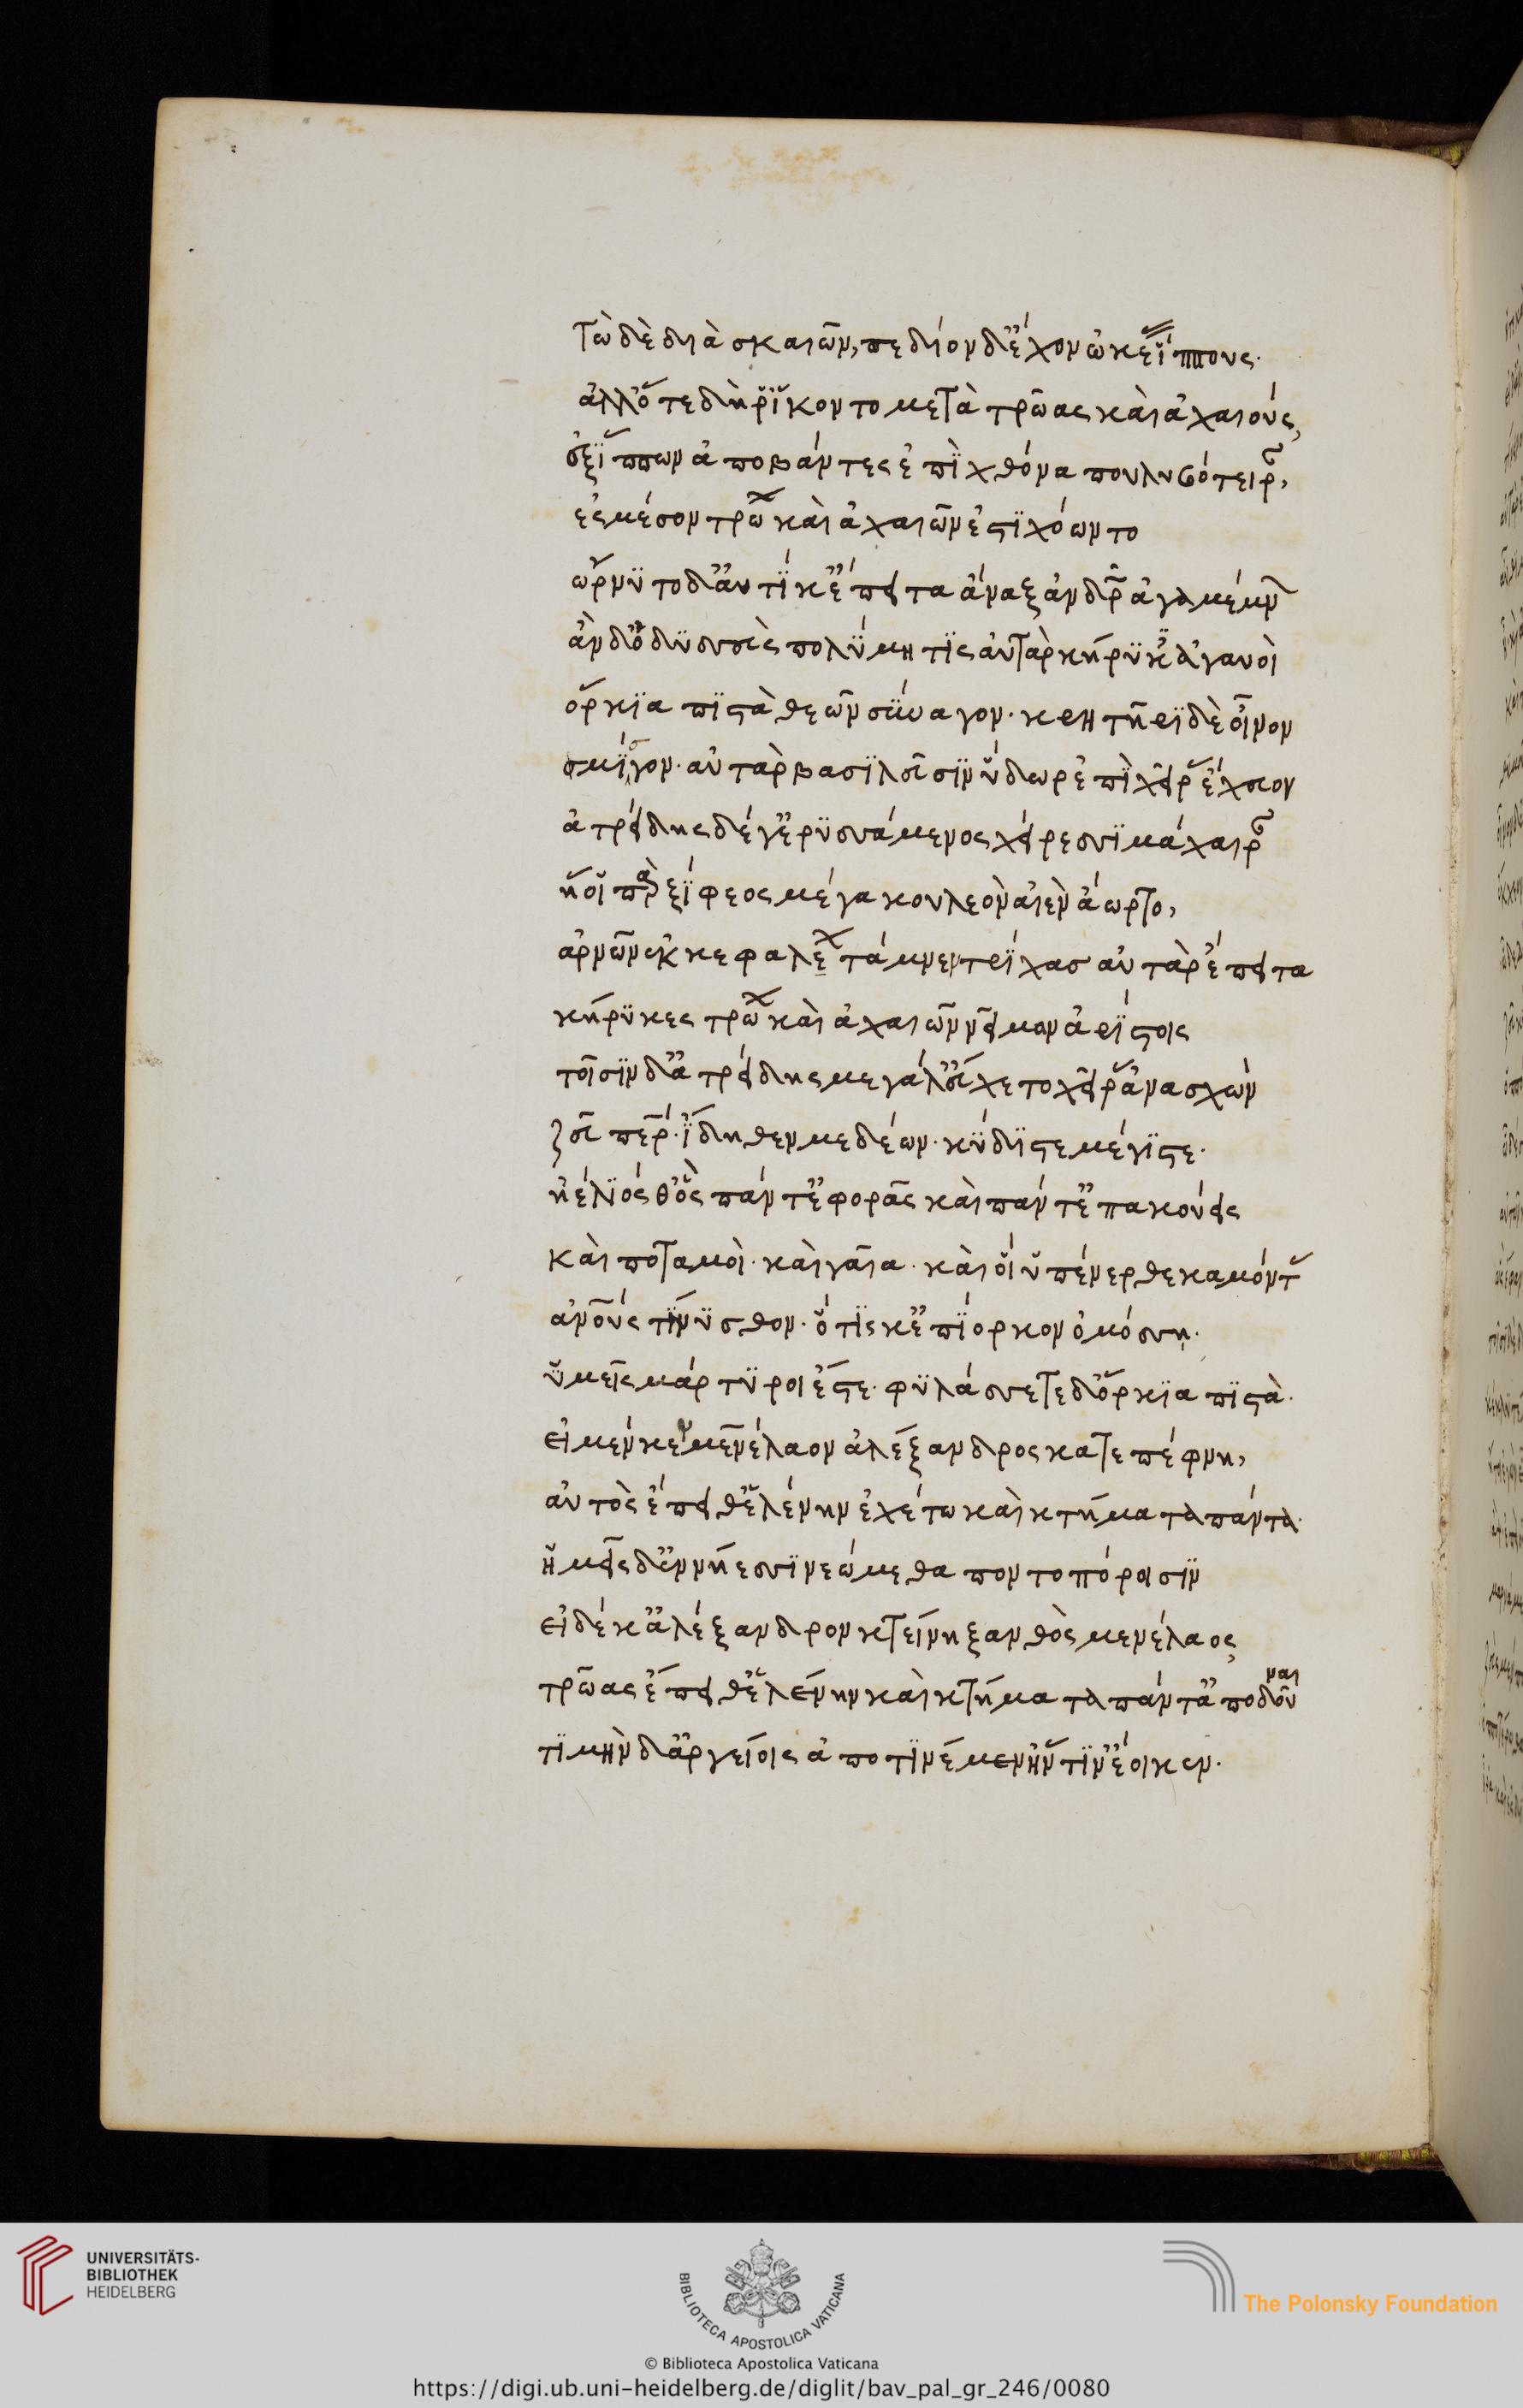 τὼ δὲ διὰ σκαιῶν, πεδίον δ' ἔχον ὠκέ' ἵππους.
ἀλλ' ὅτε δή ῥ' ἵκοντο μετὰ τρῶας καὶ ἀχαιούς,
ἐξ ἵππων ἀποβάντες ἐπὶ χθόνα πουλυβότειραν,
ἐς μέσον τρώων καὶ ἀχαιῶν ἐστιχόωντο
ὤρνυτο δ' αὐτίκ' ἔπειτα ἄναξ ἀνδρῶν ἀγαμέμνων
ἂν δ' ὀδυσσεὺς πολύμητις αὐτὰρ κήρυκες ἀγαυοὶ
ὅρκια πιστὰ θεῶν σύναγον. κρητῆρι δὲ οἶνον
μίσγον. αὐτὰρ βασιλεῦσιν ὕδωρ ἐπὶ χεῖρας ἔχευον
ἀτρείδης δέ γ' ἐρυσσάμενος χείρεσσι μάχαιραν
ἥ οἱ παρ ξίφεος μέγα κουλεὸν αἰὲν ἄωρτο,
ἀρνῶν ἐκ κεφαλέων τάμνεν τρίχας αὐτὰρ ἔπειτα
κήρυκες τρώων καὶ ἀχαιῶν νεῖμαν ἀρίστοις
τοῖσιν δ' ἀτρείδης μεγάλ' εὔχετο χεῖρας ἀνασχών
ζεῦ πάτερ. ἴδηθεν μεδέων. κύδιστε μέγιστε.
ἠέλιός θ' ὃς πάντ' ἐφορᾶς καὶ πάντ' ἐπακούεις
καὶ ποταμοὶ. καὶ γαῖα. καὶ οἳ ὑπένερθε καμόντας
ἀνους τίνυσθον. ὅτις κ' ἐπίορκον ὀμόσση.
ὑμεῖς μάρτυροι ἔστε. φυλάσσετε δ' ὅρκια πιστὰ.
εἰ μέν κεν μενέλαον ἀλέξανδρος καταπέφνη,
αὐτὸς ἔπειθ' ἑλένην ἐχέτω καὶ κτήματα πάντα.
ἡμεῖς δ' ἐν νήεσσι νεώμεθα ποντοπόροισιν
εἰ δέ κ' ἀλέξανδρον κτείνη ξανθὸς μενέλαος
τρῶας ἔπειθ' ἑλένην καὶ κτήματα πάντ' ἀποδοῦναι
τιμὴν δ' ἀργείοις ἀποτινέμεν ἥν τιν' ἔοικεν.
UNIVERSITÄTS-
BIBLIOTHEK
HEIDELBERG
BIBLIOTECA APOSTOLICA VATICANA
The Polonsky Foundation
© Biblioteca Apostolica Vaticana
https://digi.ub.uni-heidelberg.de/diglit/bav_pal_gr_246/0080